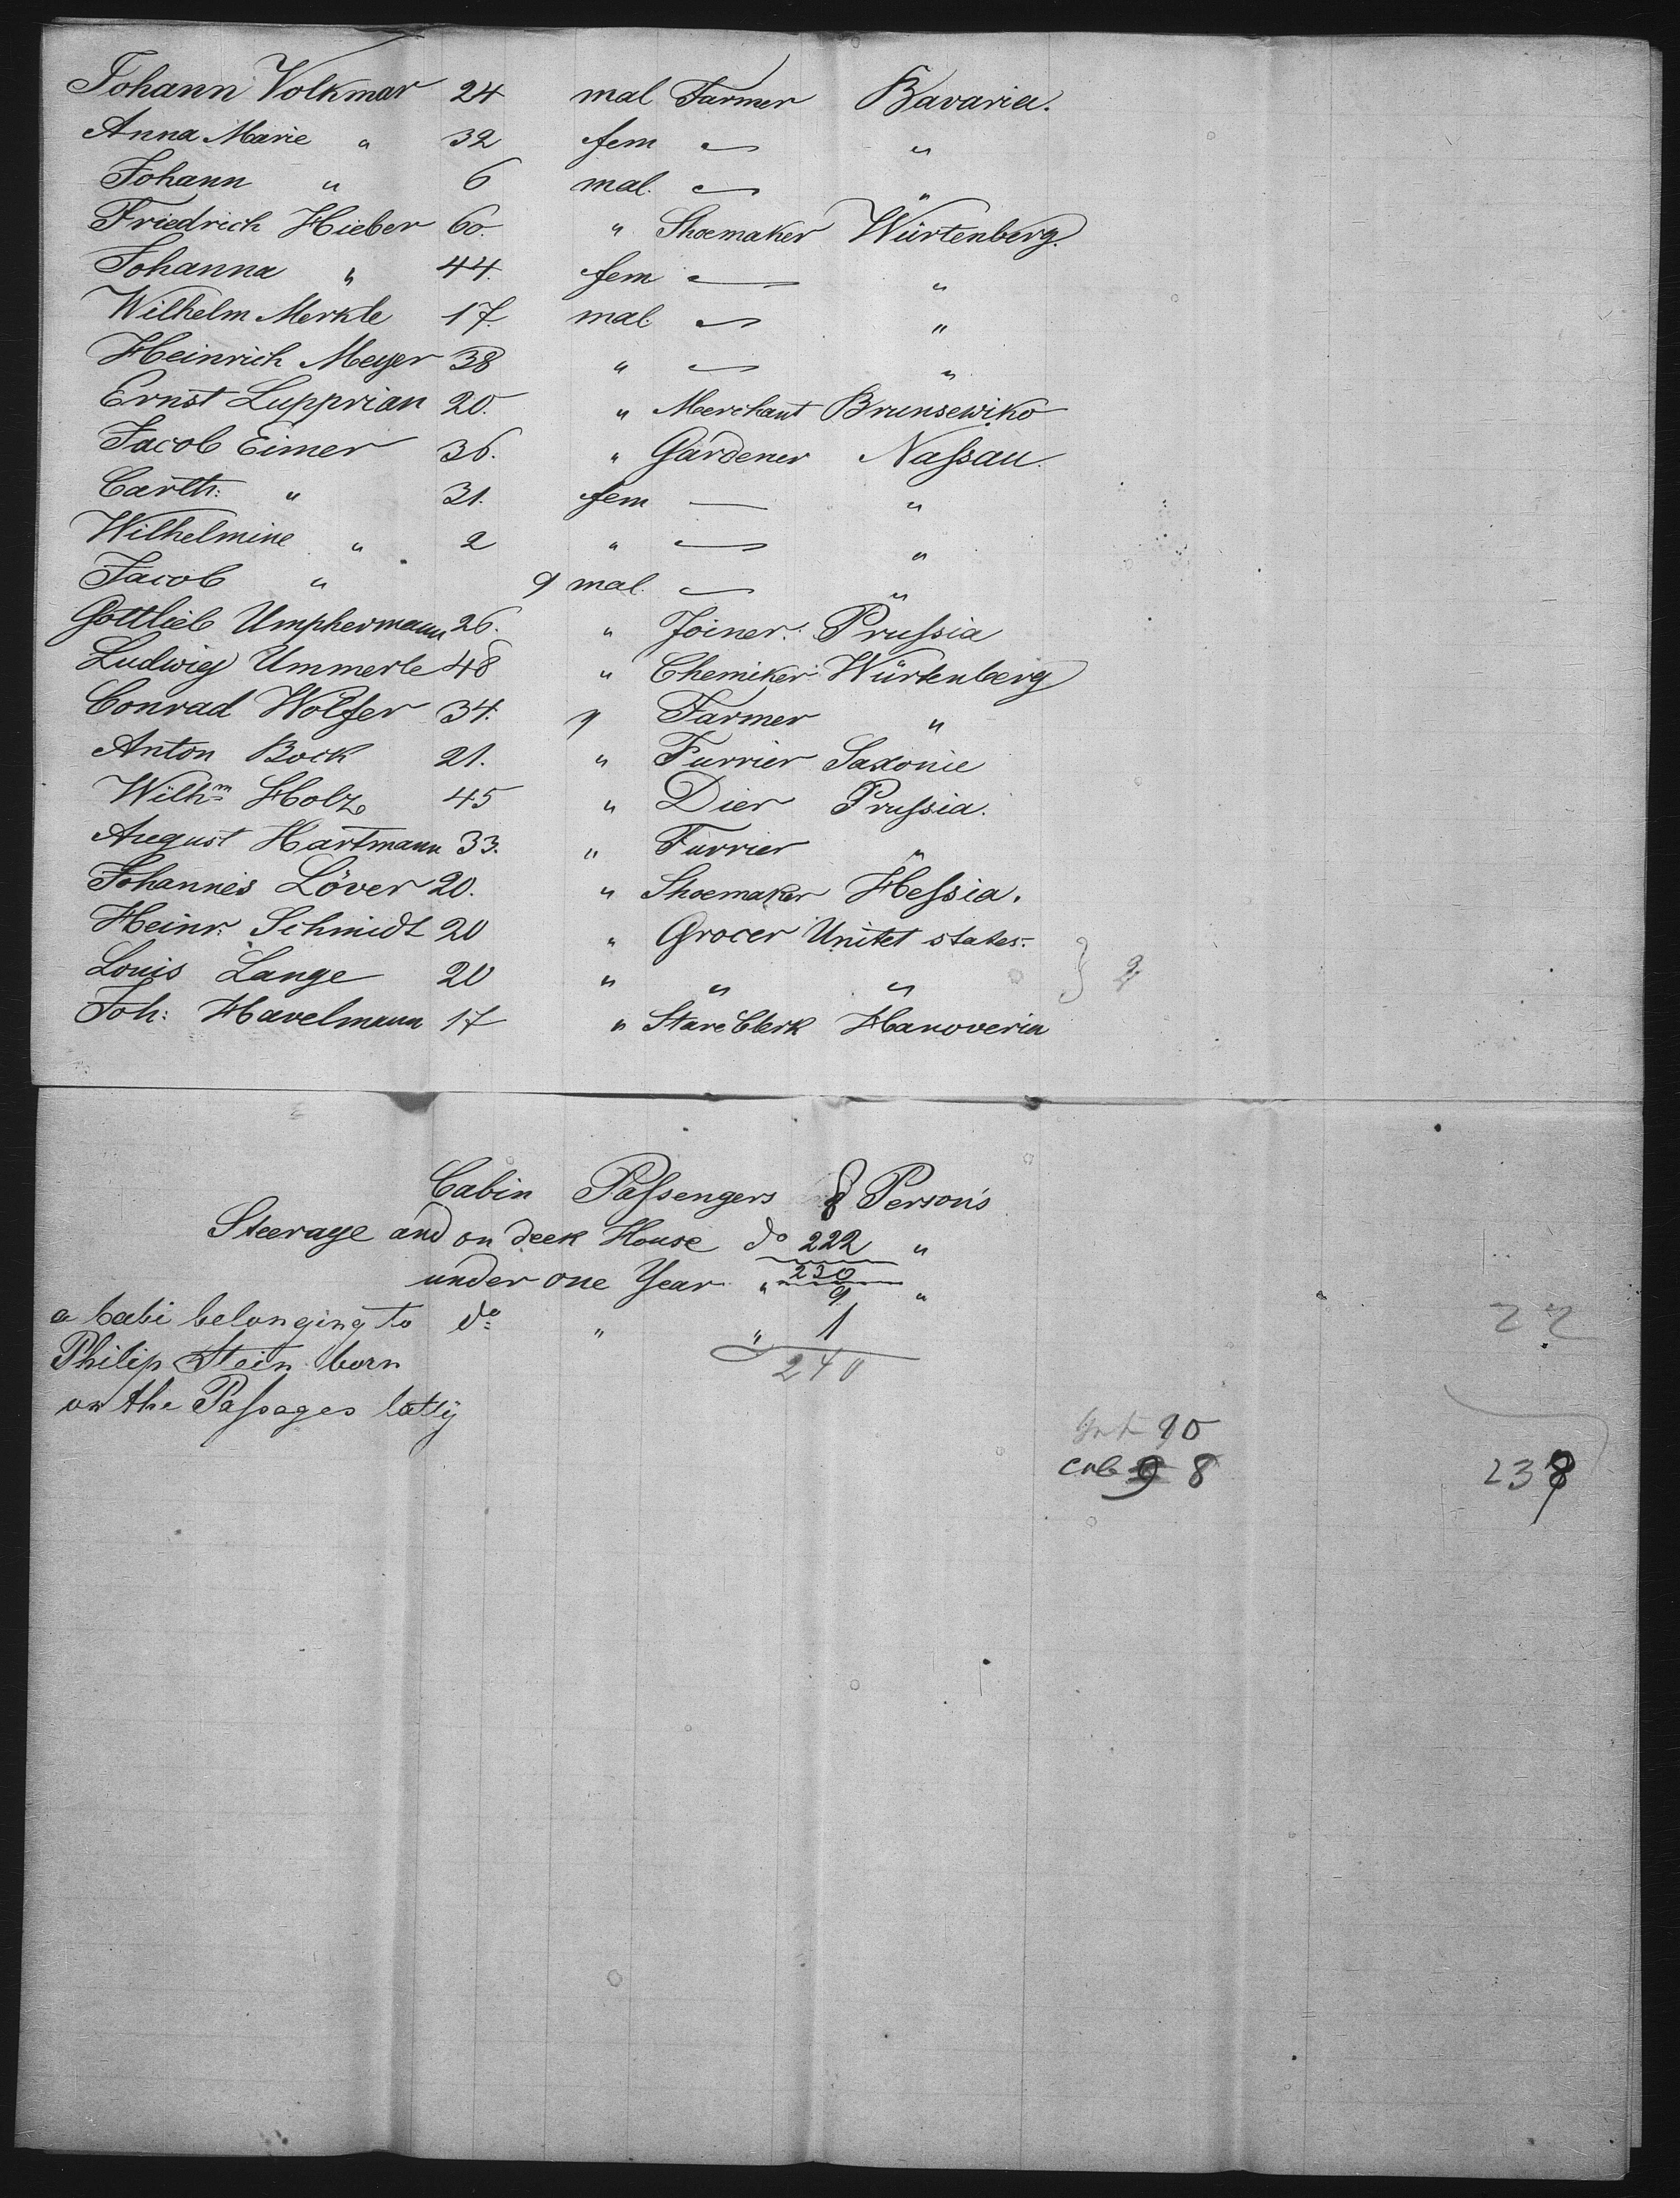 Johann Volkmar 24 mal Farmer Bavaria.
Anna Marie " 32 fem — "
Johann " 6 mal. — "
Friedrich Hieber 60. " Shoemaker Würtenberg.
Johanna " 44. fem — "
Wilhelm Merkle 17. mal. — "
Heinrich Meyer 38 " — "
Ernst Lupprian 20. " Merchant Brunsewiko
Jacob Eimer 36. " Gardener Naſsau.
Carth: " 31. fem — "
Wilhelmine " 2 " — "
Jacob " 9 mal. — "
Gottlieb Umphermann 26. " Joiner. Pruſsia
Ludwig Ummerle 48 " Chemiker Würtenberg
Conrad Wolfer 34. " Farmer "
Anton Bock 21. " Furrier Saxonie
Wilhm Holz 45 " Dier Pruſsia.
August Hartmann 33. " Furrier "
Johannes Löver 20. " Shoemaker Heſsia.
Heinr. Schmidt 20 " Grocer Unitet states.
Louis Lange 20 " " " } 2
Joh: Havelmann 17 " Stare Clerk Hanoveria
Cabin Paſsengers 8 Person's
Steerage and on deek House do 222 "
230
under one Year " 9 "
a babi belonging to do " " 1
Philip Stein born 240
on the Paſsages latly
22
90
cab 9 8 238